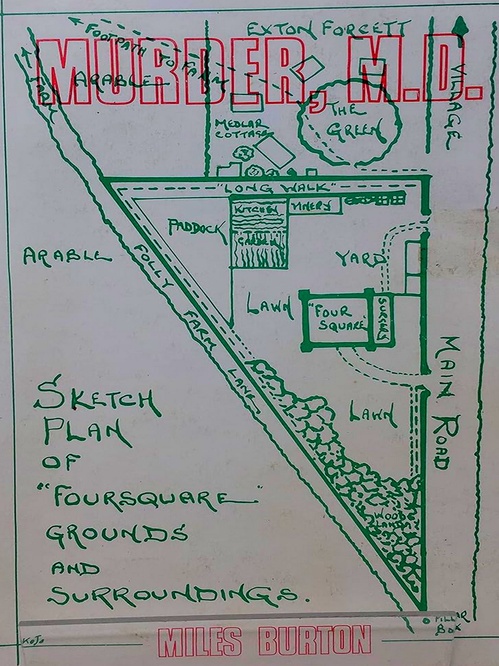 EXTON FORCETT
FOOTPATH TO FARM
MURDER, M.D.
ARABLE
FARM
VILLAGE
THE
GREEN
MEDLAR
COTTAGE
"LONG WALK"
KITCHEN
GARDEN
VINERY
PADDOCK
ARABLE
YARD
FOLLY FARM LANE
LAWN
"FOUR
SQUARE"
SURGERY
MAIN ROAD
LAWN
SKETCH
PLAN
OF
"FOURSQUARE"
GROUNDS
AND
SURROUNDINGS.
WOOD
LAND
PILLAR
BOX
KOJO
MILES BURTON